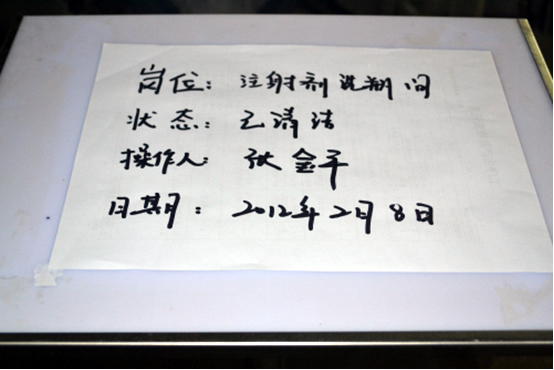 岗位：注射剂洗瓶间
状态：已清洁
操作人：张金平
日期：2012年2月8日